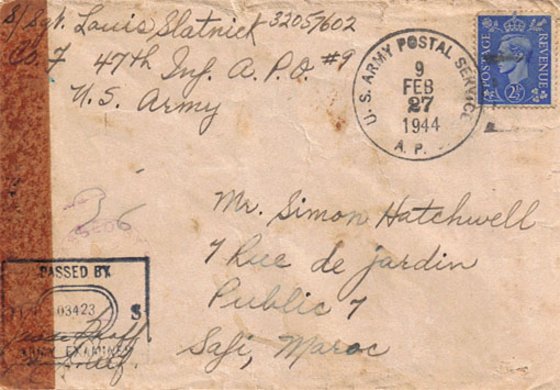 S/Sgt. Louis Slatnick 32057602
Co F 47th Inf. A.P.O. #9
U.S. Army
U.S. ARMY POSTAL SERVICE
9
FEB
27
1944
A. P.
POSTAGE
REVENUE
2½
Mr. Simon Hatchwell
7 Rue de jardin
Public 7
Safi, Maroc
PASSED BY
03423
S
ARMY EXAMINER